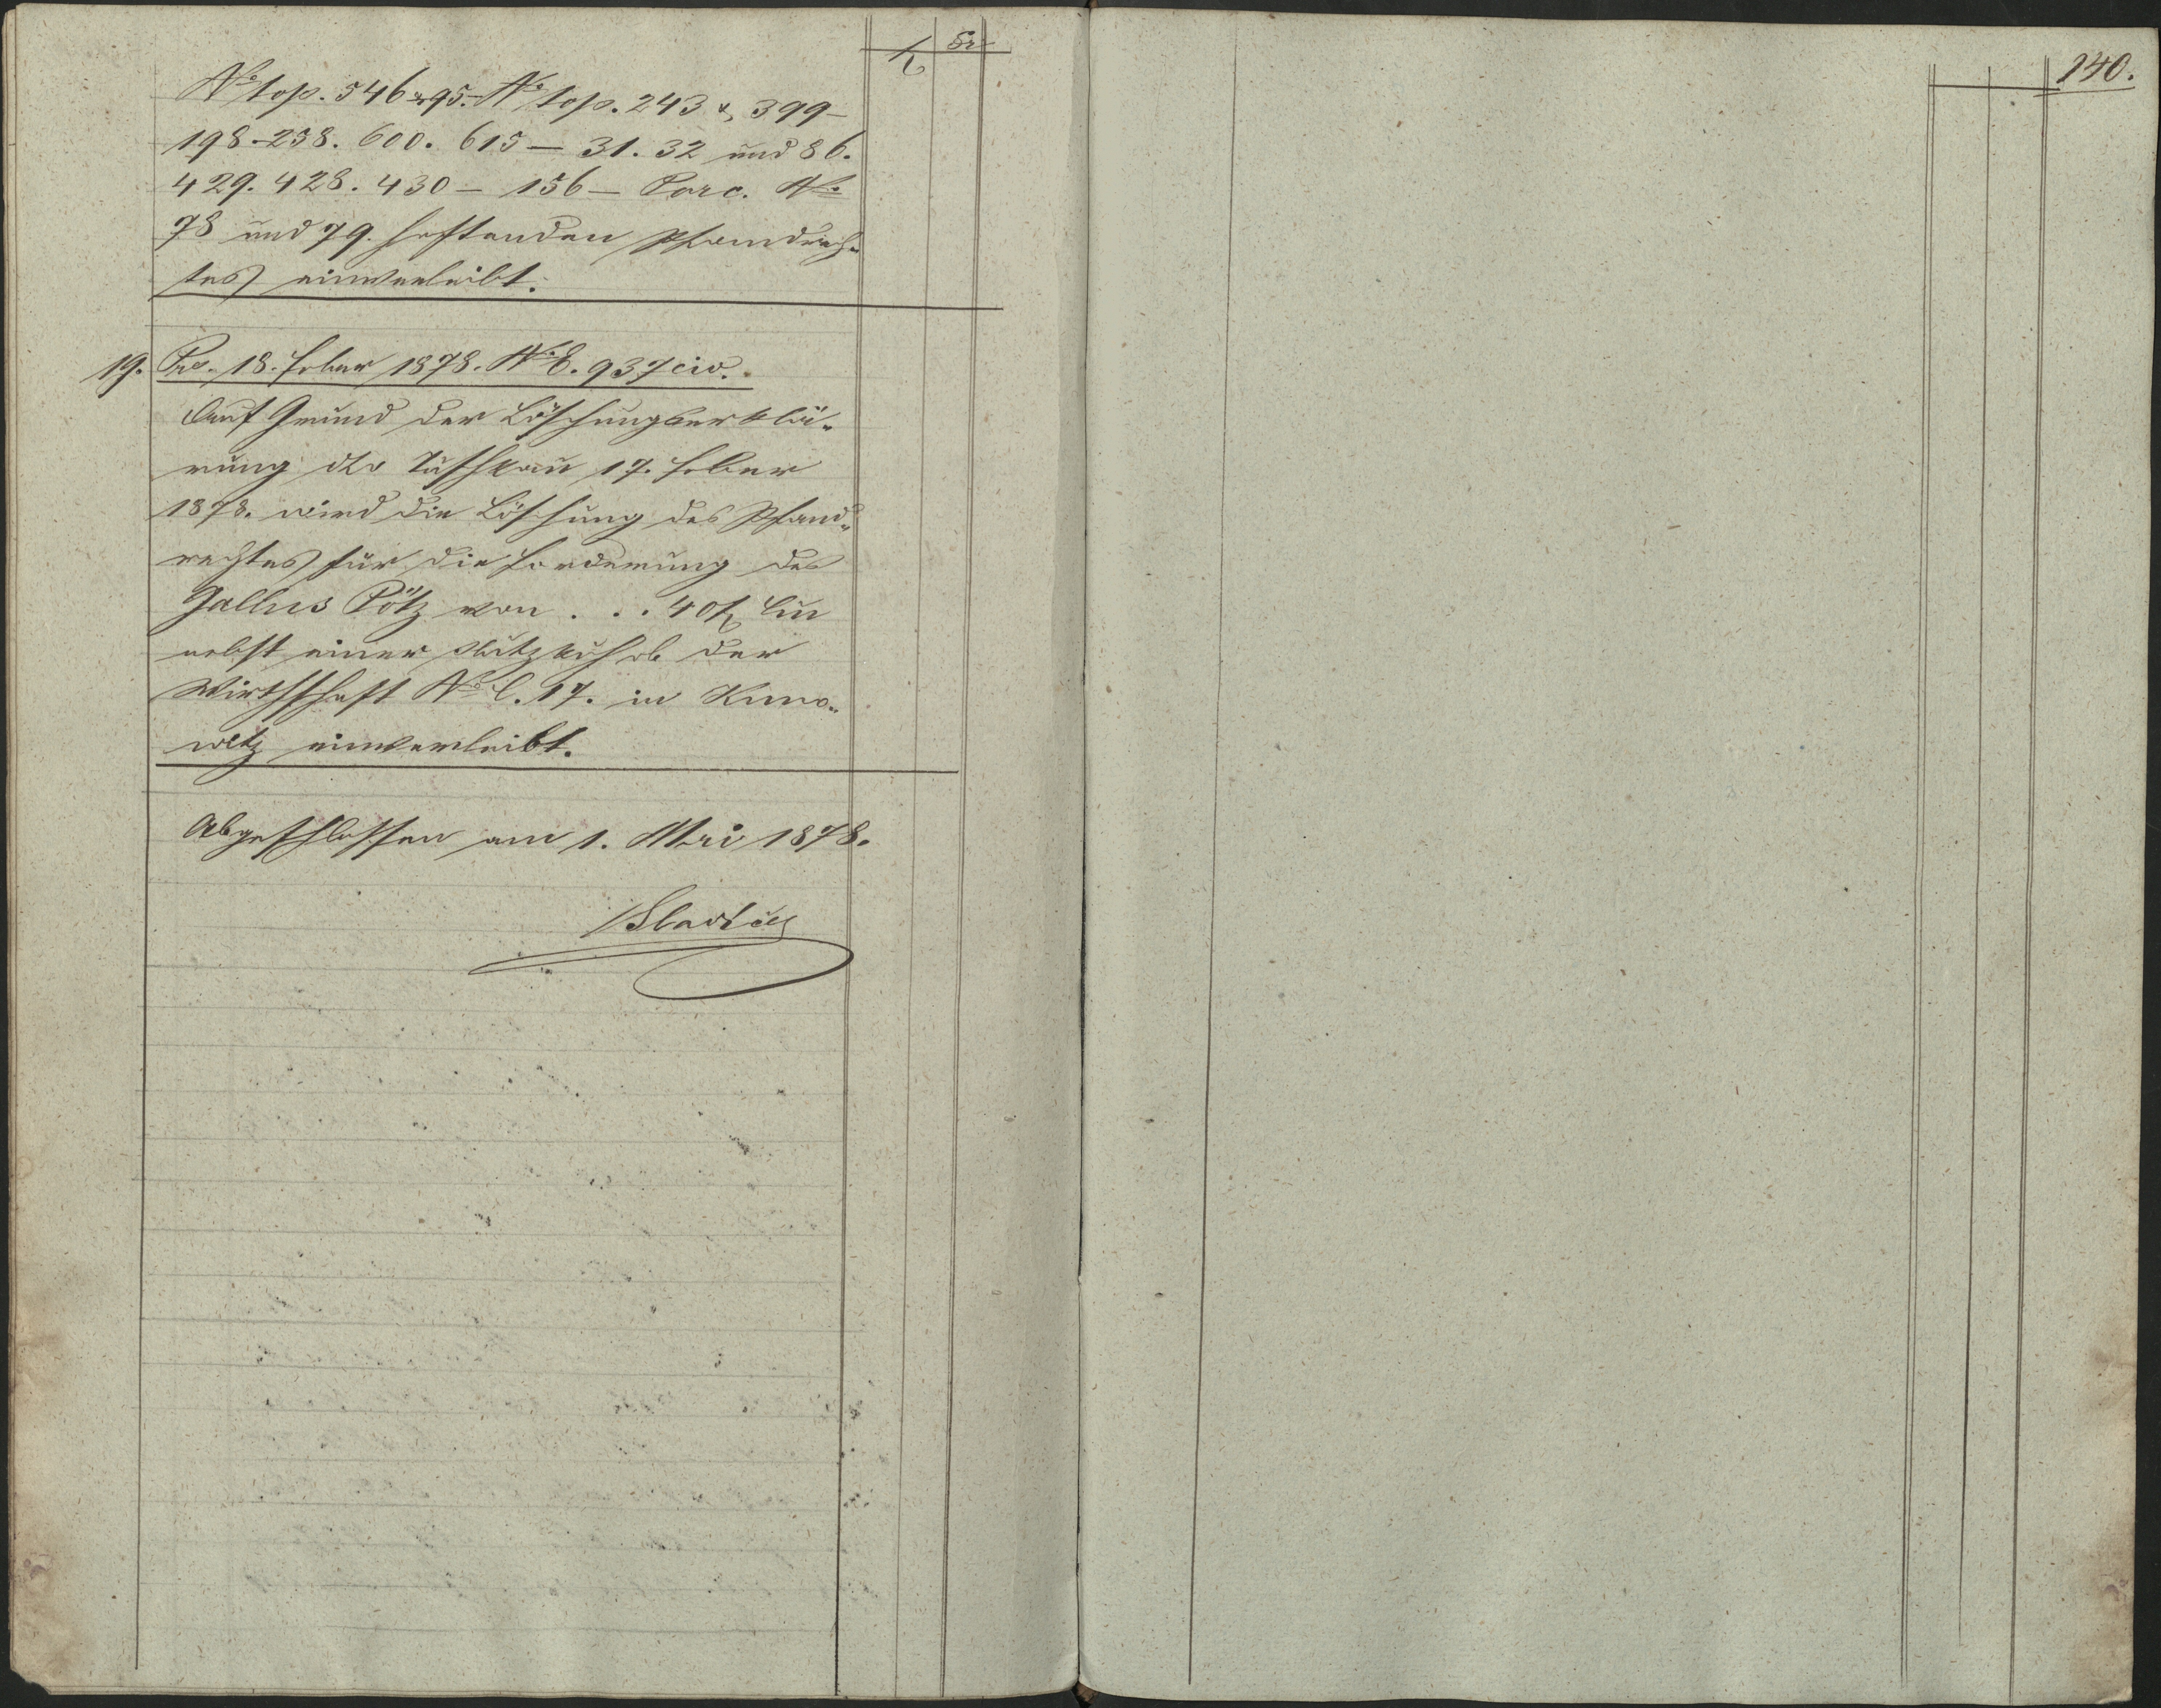 f kr
No top. 546 & 95. No top. 243 &, 399-
198-258. 600. 615 — 31. 32 und 86.
429. 428. 430 — 156 — Parc. No
78 und 79. haftenden Pfandrech„
tes einverleibt.
19. Prs. 18. Feber 1878. No E. 937 civ.
Auf Grund der Löschungserklä„
rung dto 17. Feber
1878. wird die Löschung des Pfand„
rechtes für die Forderung des
Gallus Pötz von . . . 40 f
nebst einer Nutzkuh ob der
Wirthschaft No C. 17. in Kuno„
witz einverleibt.
Abgeschlossen am 1. Mai 1878.
140.